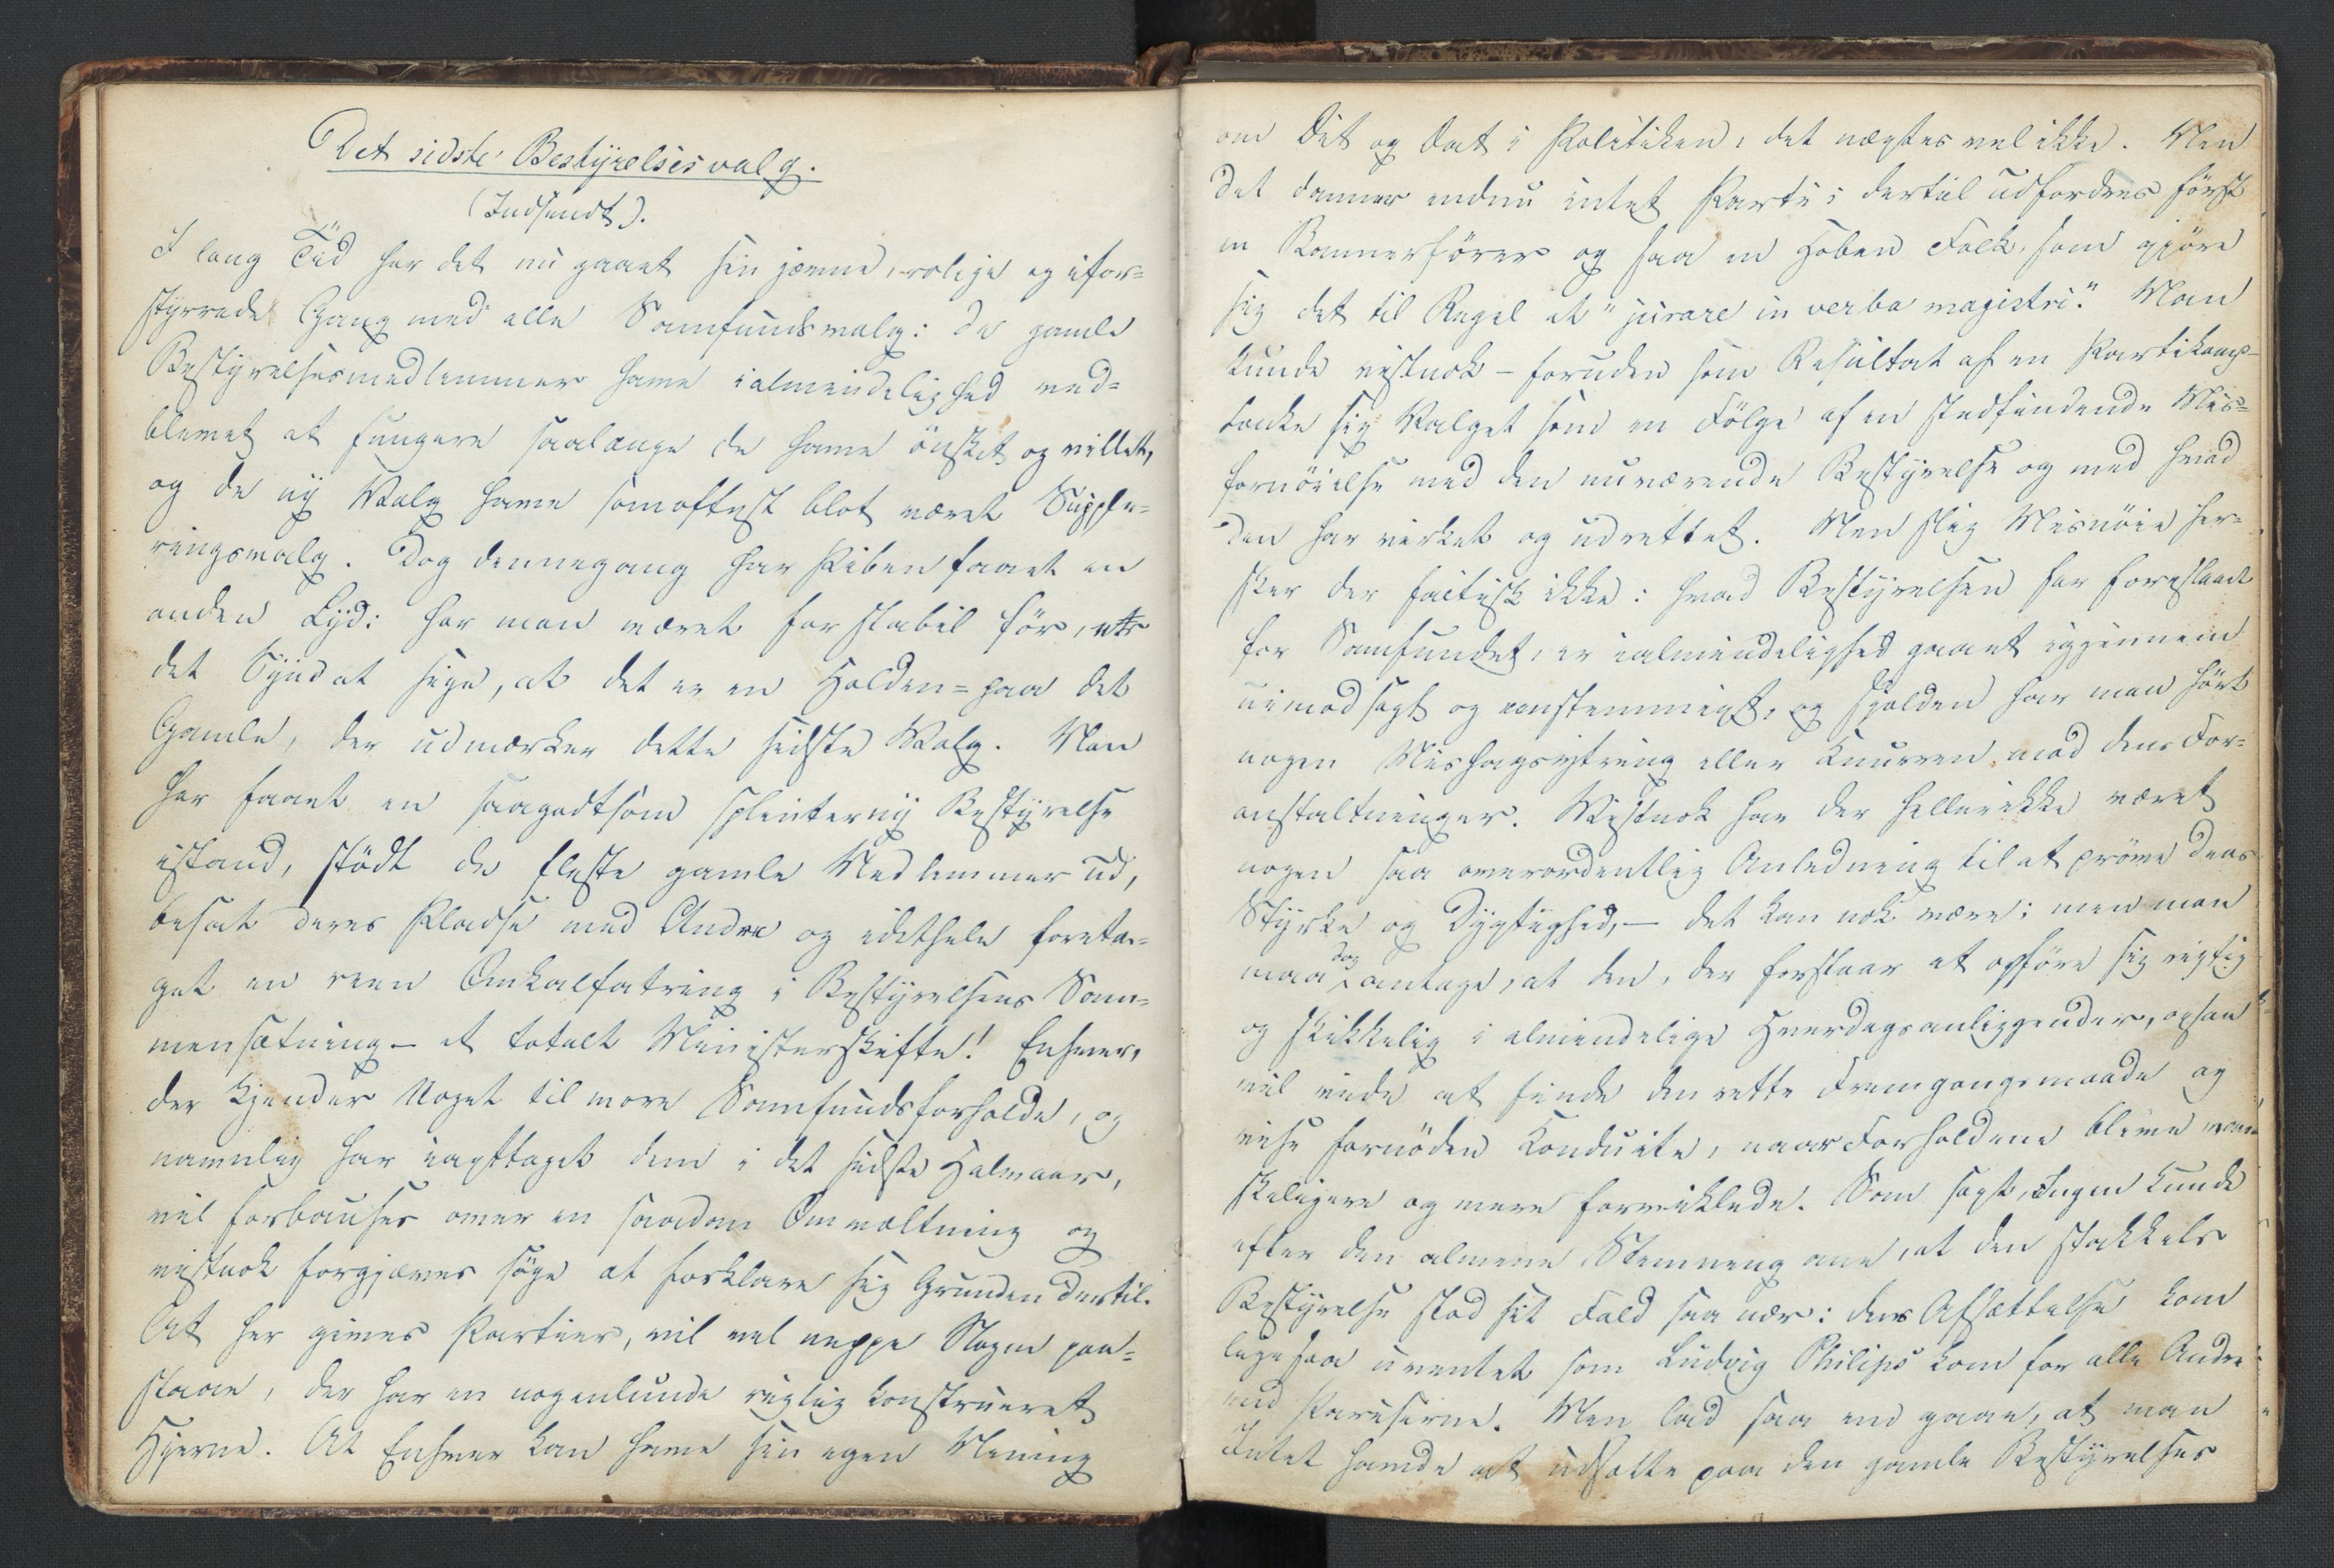 Det sidste Bestyrelsesvalg.
(Indsendt).
I lang Tid har det nu gaaet sin jævne, rolige og ufor=
styrrede Gang med alle Samfundsvalg: de gamle
Bestyrelsesmedlemmer have ialmindelighed ved=
blevet at fungere saalænge de have ønsket og villet,
og de ny Valg have somoftest blot været Supple=
ringsvalg. Dog dennegang har Piben faaet en
anden Lyd: har man været for stabil før, er
det Synd at sige, at det er en Holden=paa det
Gamle, der udmærker dette sidste Valg. Man
har faaet en saagodtsom splinterny Bestyrelse
istand, stødt de fleste gamle Medlemmer ud,
besat deres Pladse med Andre og idethele foreta=
get en reen Omkalfatring i Bestyrelsens Sam=
mensætning – et totalt Ministerskifte! Enhver,
der kjender Noget til vore Samfundsforholde, og
navnlig har iagttaget dem i det sidste Halvaar,
vil forbauses over en saadan Omvæltning og
vistnok forgjæves søge at forklare sig Grunden dertil.
At her gives Partier, vil vel neppe Nogen paa=
staae, der har en nogenlunde rigtig konstrueret
Hjerne. At Enhver kan have sin egen Mening
om Dit og Dat i Politiken, det nægtes vel ikke. Men
det danner endnu intet Parti; dertil udfordres først
en Bannerfører og saa en Hoben Folk, som gjøre
sig det til Regel at "jurare in verba magistri." Man
kunde vistnok – foruden som Resultat af en Partikamp –
tænke sig Valget som en Følge af en stedfindende Mis=
fornøielse med den nuværende Bestyrelse og med hvad
den har virket og udrettet. Men slig Misnøie her=
sker der factisk ikke: hvad Bestyrelsen har foreslaaet
for Samfundet, er ialmindelighed gaaet igjennem
uimodsagt og eenstemmigt, og sjelden har man hørt
nogen Mishagsytring eller Knurren mod dens For=
anstaltninger. Vistnok har der hellerikke været
nogen saa overordentlig Anledning til at prøve dens
Styrke og Dygtighed, – det kan nok være; men man
maa dog antage, at den, der forstaar at opføre sig rigtig
og skikkelig i almindelige Hverdagsanliggender, ogsaa
vil vide at finde den rette Fremgangsmaade og
vise fornøden Konduite, naar Forholdene blive van=
skeligere og mere forviklede. Som sagt, Ingen kunde
efter den almene Stemning ane, at den stakkels
Bestyrelse stod sit Fald saa nær: dens Afsættelse kom
ligesaa uventet som Ludvig Philips kom for alle Andre
end Pariserne. Men lad saa end gaae, at man
Intet havde at udsætte paa den gamle Bestyrelses